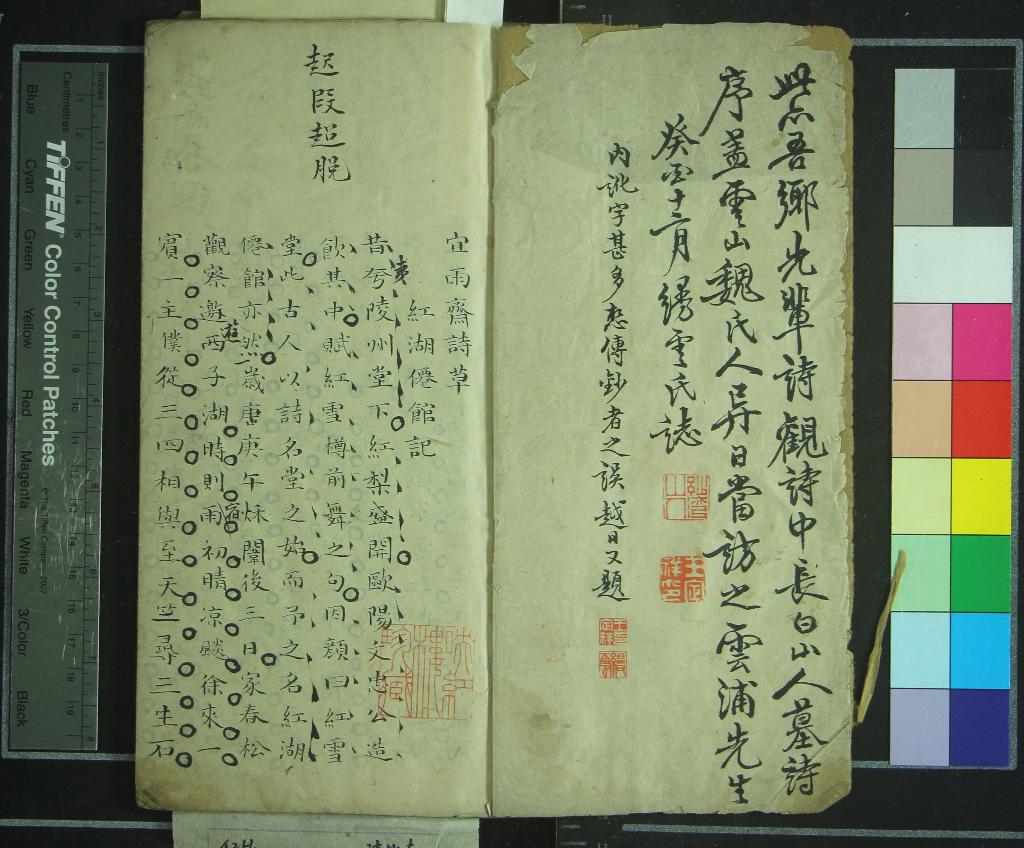 此吾鄉先輩詩觀詩中長白山人墓詩
序蓋雲山魏氏人異日當訪之雲浦先生
癸酉十二月綉雲氏誌
內訛字甚多悉傳鈔者之誤越日又題
宜雨齋詩草
紅湖僊館記
昔夸陵州堂下紅梨盛開歐陽文忠公造
夷
飲其中賦紅雪樽前舞之句因顏曰紅雪
堂此古人以詩名堂之始而予之名紅湖
僊館亦然歲庚午秌闈後三日家春松
觀察邀西子湖時則雨初晴凉颸徐來一
遊
宿
賓一主僕從三四相與至天竺尋三生石
起段超脫
Inches
Centimetres
TIFFEN Color Control Patches
© The Tiffen Company, 2007
Blue Cyan Green Yellow Red Magenta White 3/Color Black